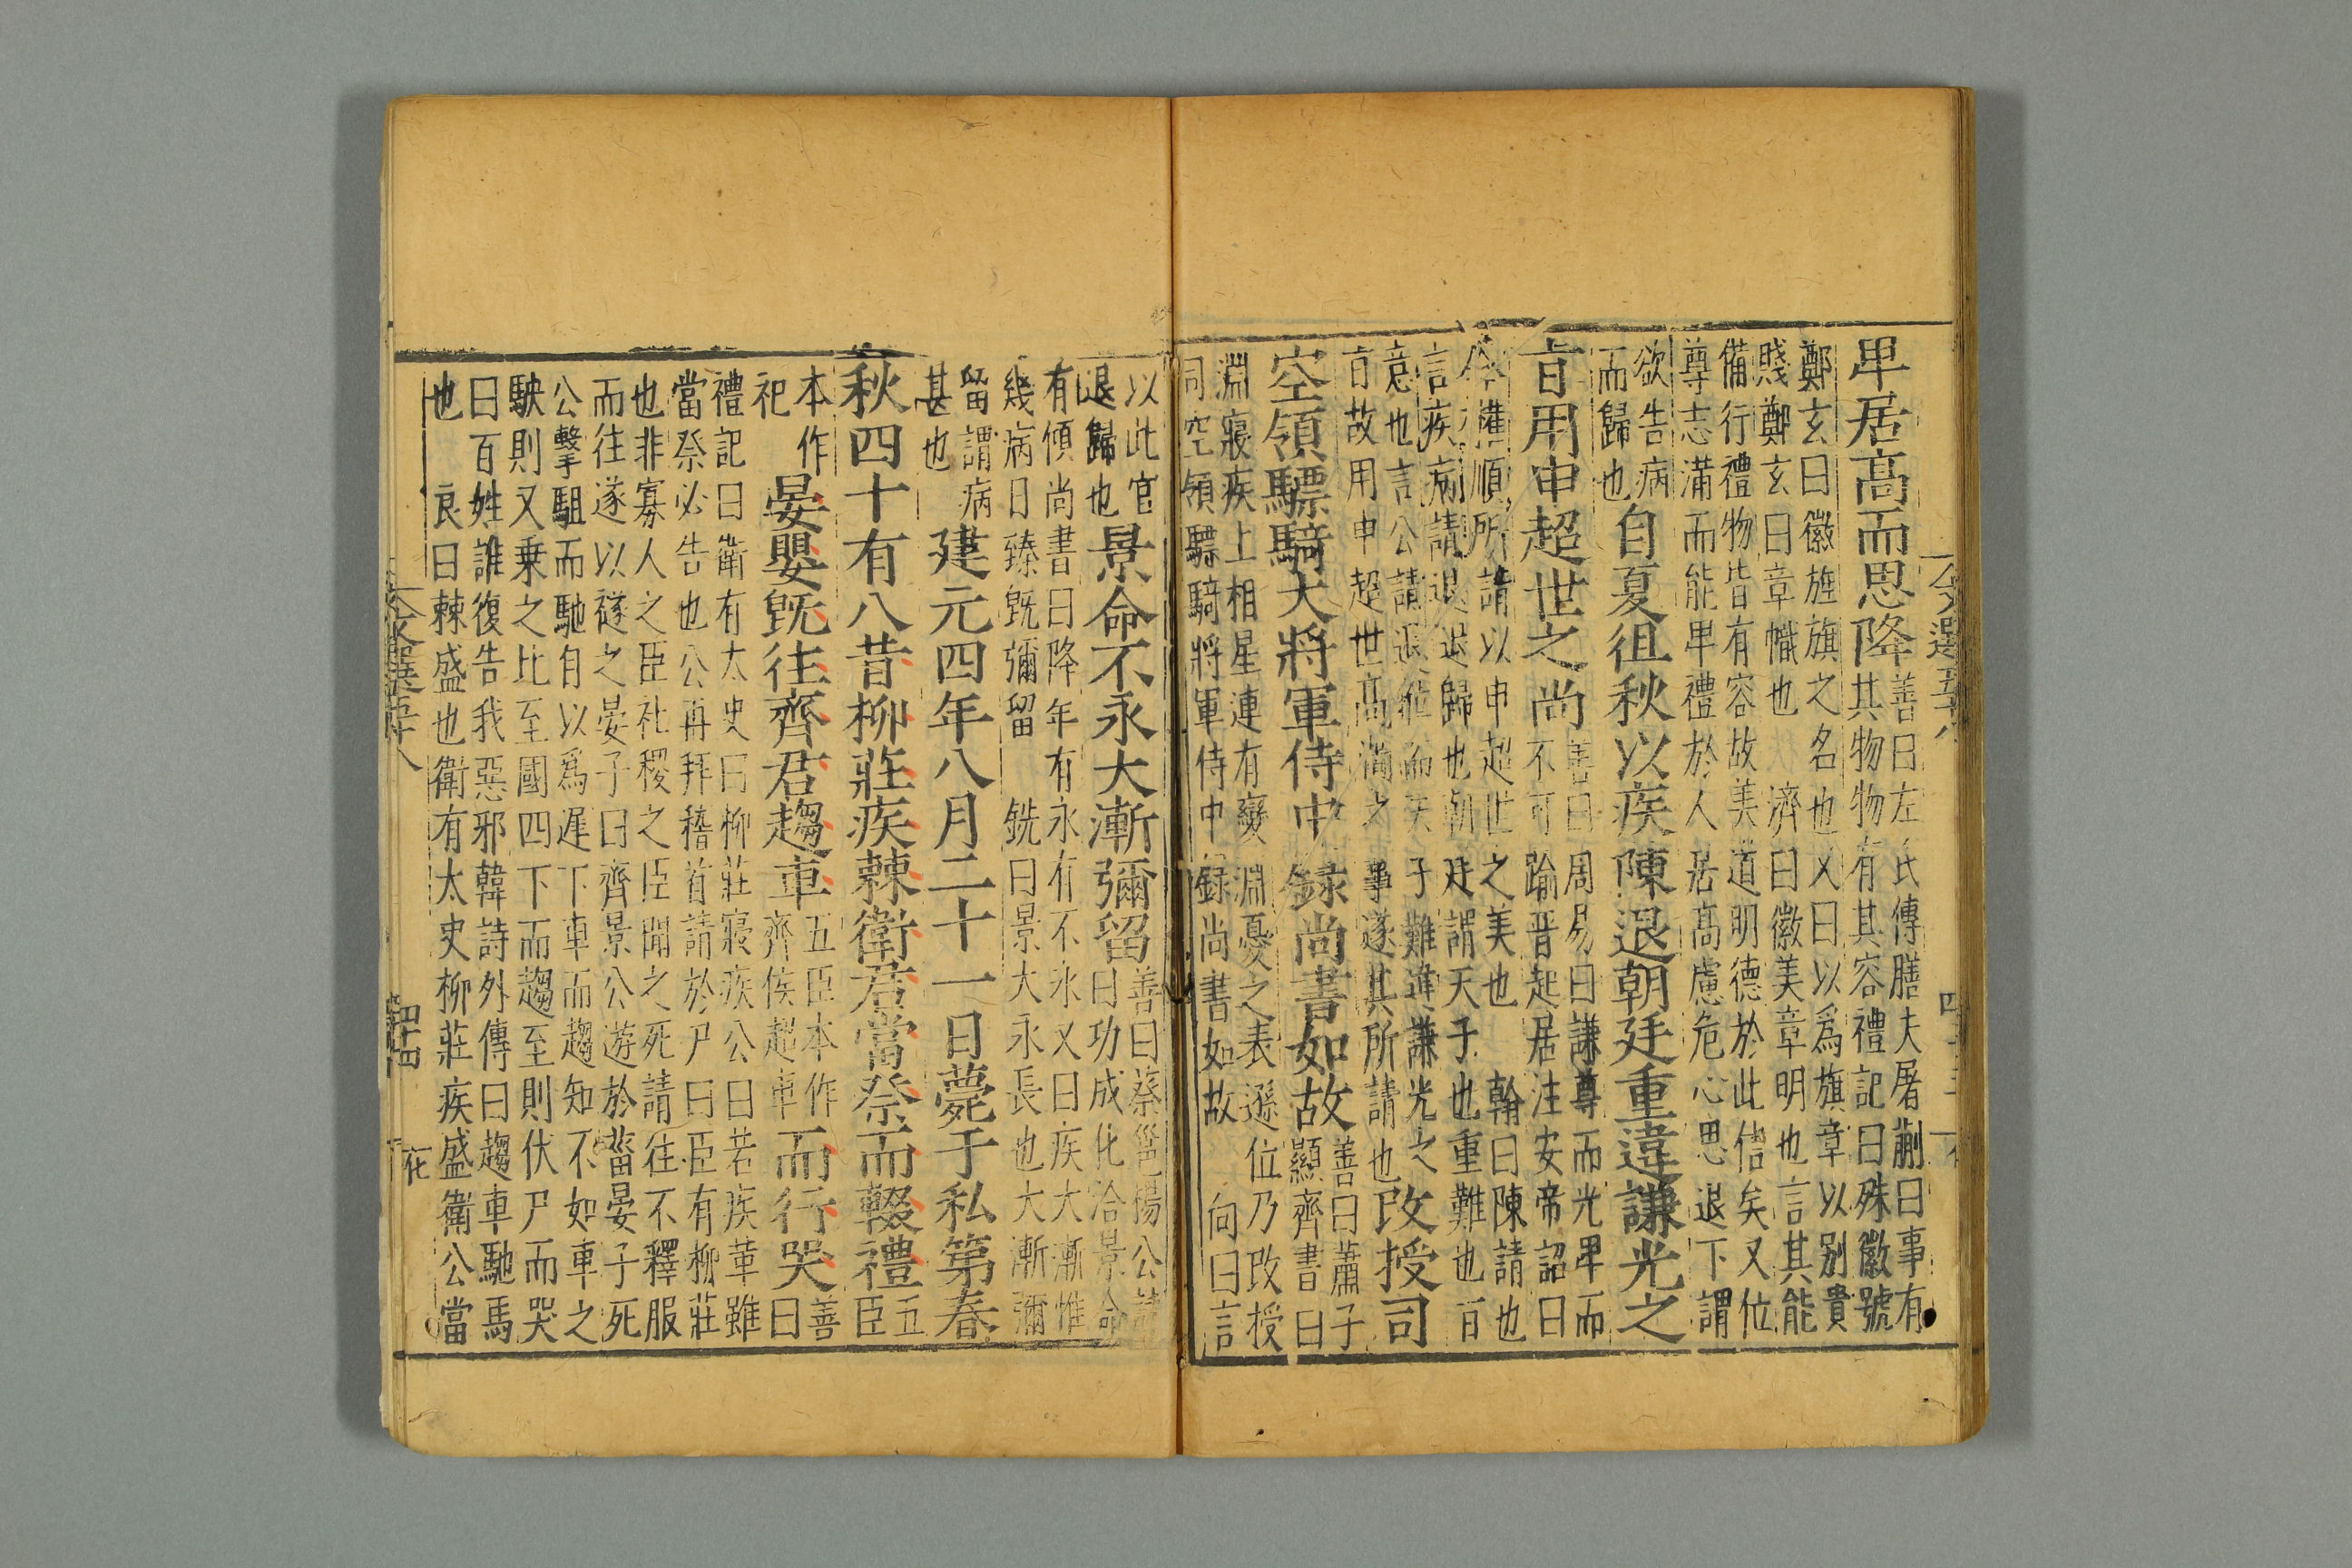 卑居高而思降善曰左氏傳膳夫屠蒯曰事有
其物物有其容禮記曰殊徽號
鄭玄曰徽旌旗之名也又曰以爲旗章以别貴
賤鄭玄曰章幟也濟曰徽美章明也言其能
備行禮物皆有容故美道明德於此信矣又位
尊志滿而能卑禮於人居高慮危心思退下謂
欲告病
而歸也自夏徂秋以疾陳退朝廷重違謙光之
旨用申超世之尚善曰周易曰謙尊而光卑而
不可踰晉起居注安帝詔曰
今權順所請以申超世之美也翰曰陳請也
言疾病請退退歸也朝廷謂天子也重難也百
意也言公請退雖而天子難違謙光之
旨故用申超世高滿之事遂其所請也改授司
空領驃騎大將軍侍中録尚書如故善曰蕭子
顯齊書曰
淵寢疾上相星連有變淵憂之表遜位乃改授
司空領驃騎將軍侍中録尚書如故向曰言
以此官
退歸也景命不永大漸彌留善曰蔡邕楊公誄
曰功成化洽景命
有傾尚書曰降年有永有不永又曰疾大漸惟
幾病日臻既彌留銑曰景大永長也大漸彌
留謂病
甚也建元四年八月二十一日薨于私第春
秋四十有八昔柳莊疾棘衛君當祭而輟禮五
臣
本作
祀晏嬰既往齊君趨車五臣本作
齊侯趨車而行哭善
曰
禮記曰衛有太史曰柳莊寢疾公曰若疾革雖
當祭必告也公再拜稽首請於尸曰臣有柳莊
也非寡人之臣社稷之臣聞之死請往不釋服
而往遂以襚之晏子曰齊景公遊於菑晏子死
公擊駔而馳自以爲遲下車而趨知不如車之
駃則又乗之比至國四下而趨至則伏尸而哭
曰百姓誰復告我惡邪韓詩外傳曰趨車馳馬
也良曰棘盛也衛有太史柳莊疾盛衛公當
文選五十八
四十四